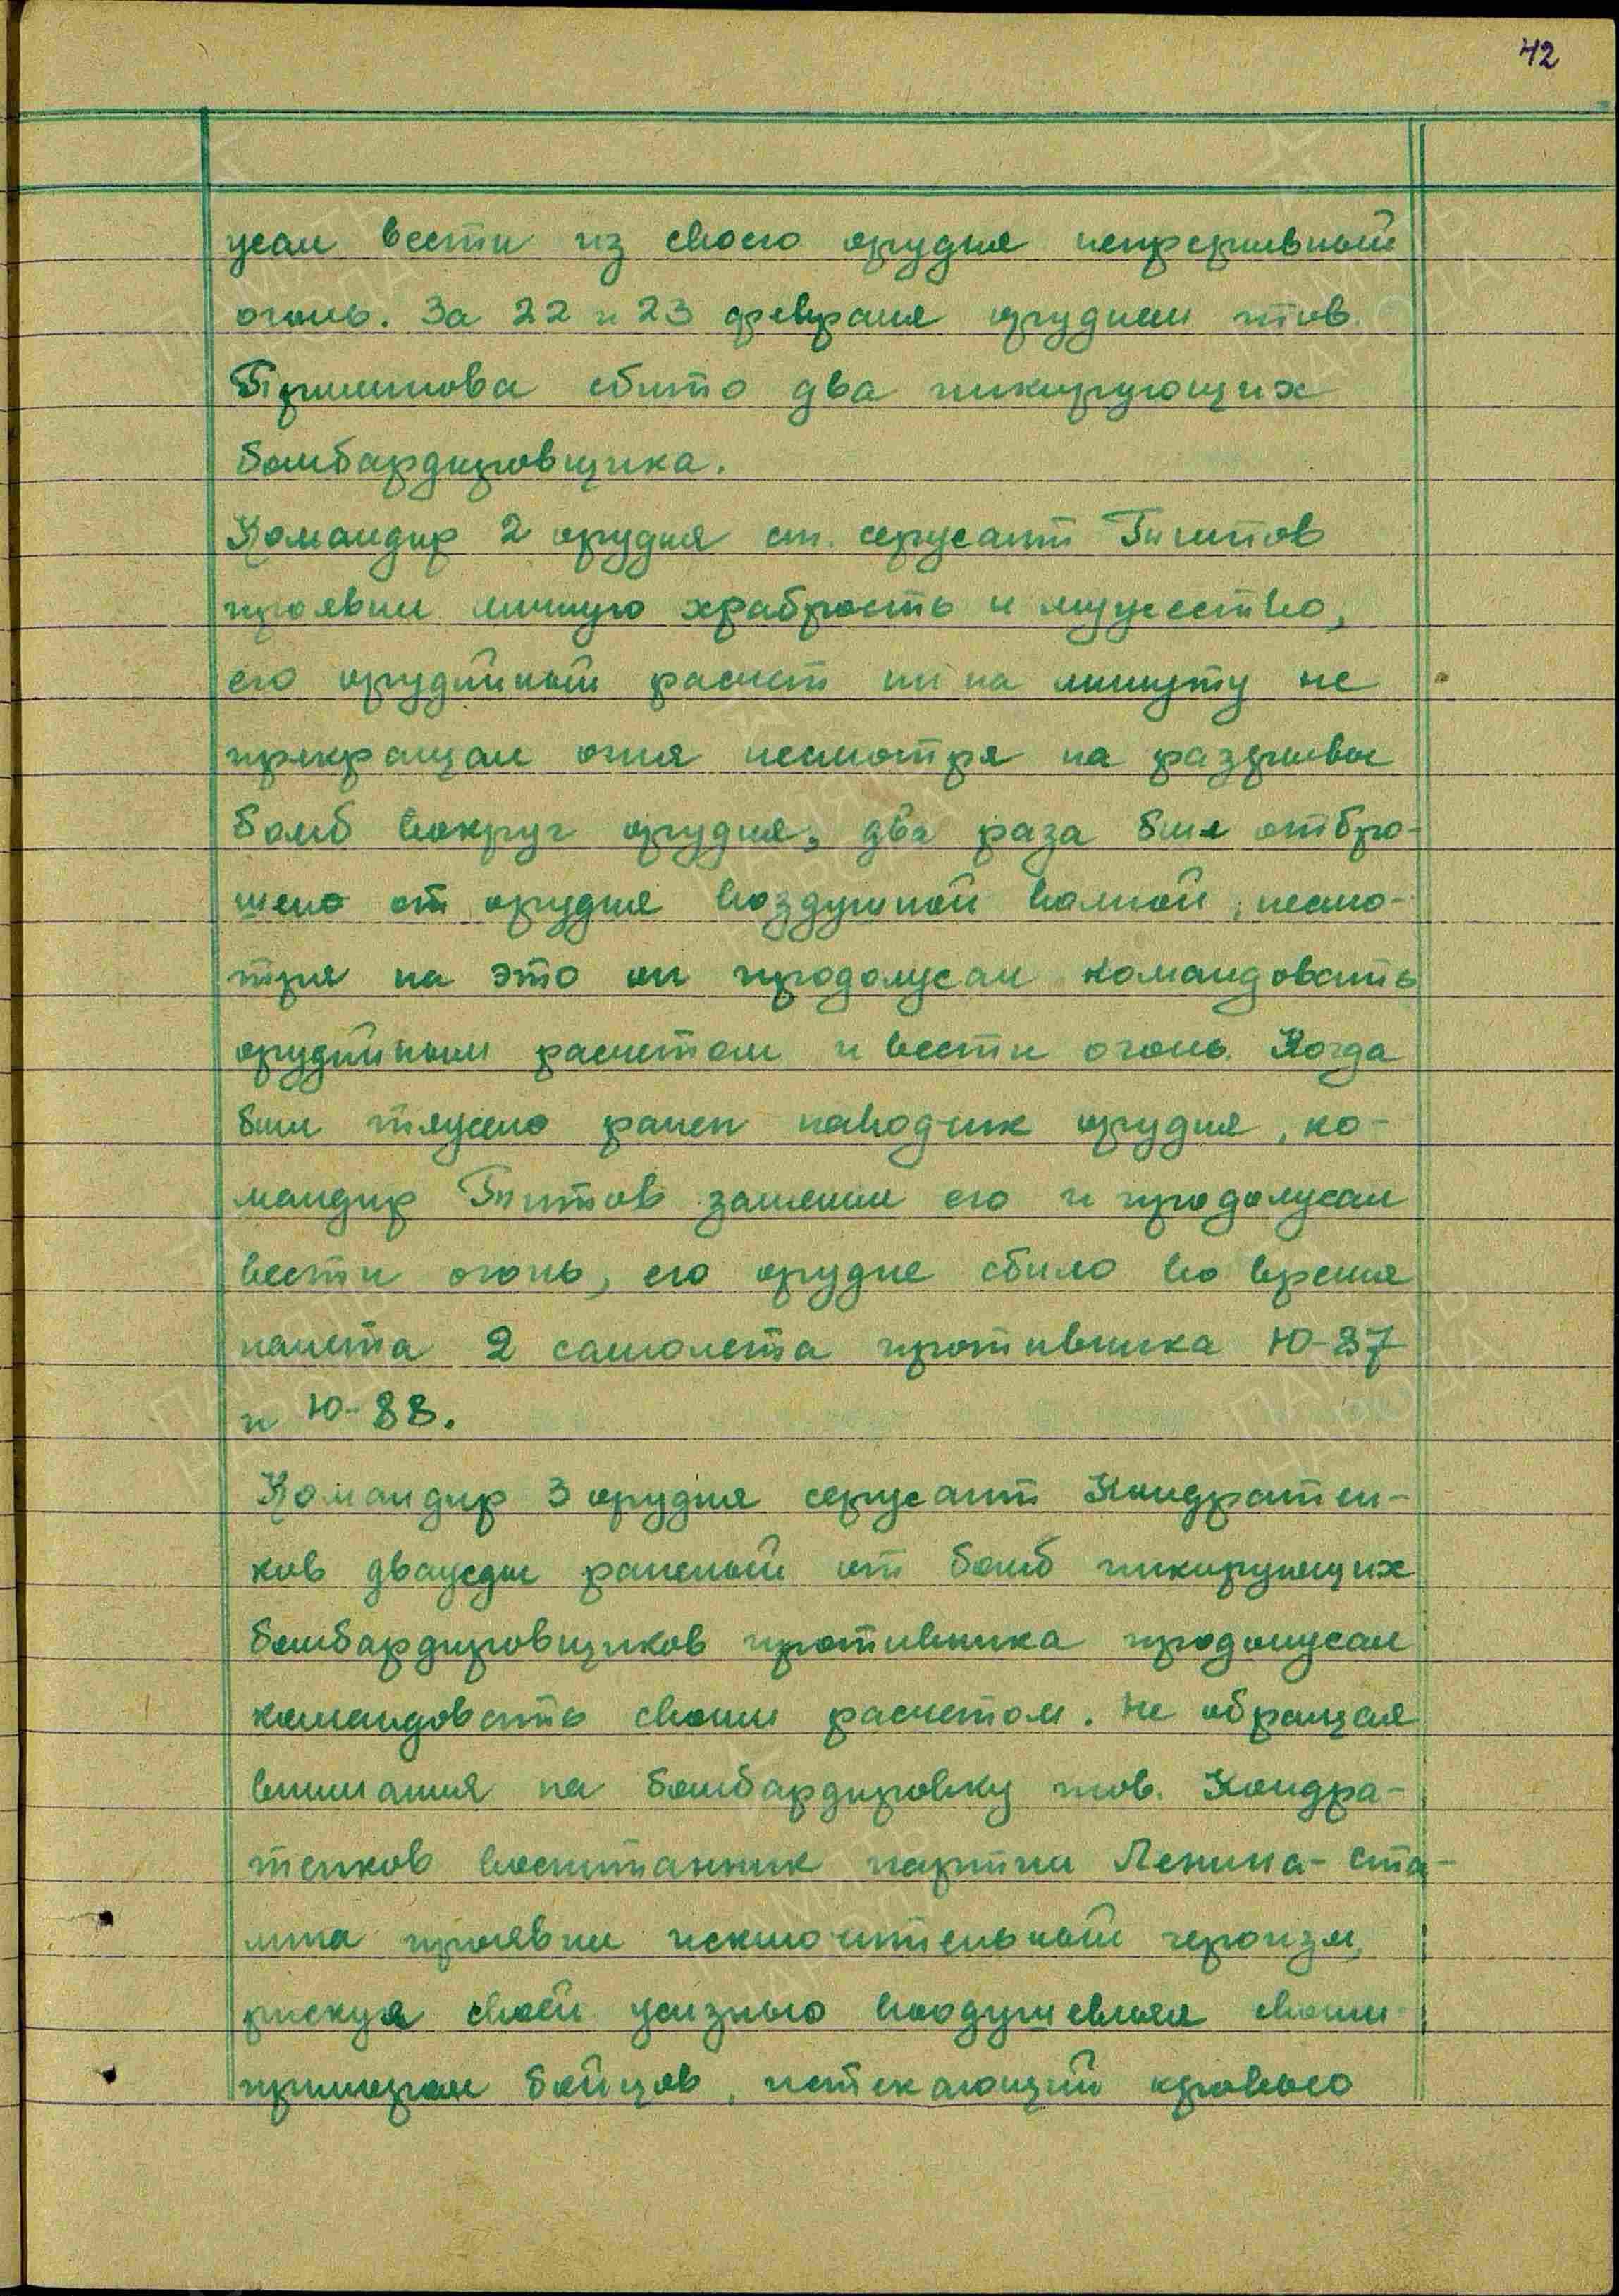 42
жал вести из своего орудия непрерывный
огонь. За 22 и 23 февраля орудием тов.
сбито два пикирующих
бомбардировщика.
Командир 2 орудия ст. сержант Титов
проявил личную храбрость и мужество,
его орудийный расчет ни на минуту не
прекращал огня несмотря на разрывы
бомб вокруг орудия, два раза был отбро-
шено от орудия воздушной волной, несмо-
тря на это он продолжал командовать
орудийным расчетом и вести огонь. Когда
был тяжело ранен наводчик орудия, ко-
мандир Титов заменил его и продолжал
вести огонь, его орудие сбило во время
налета 2 самолета противника Ю-87
и Ю-88.
Командир 3 орудия сержант Кондратен-
ков дважды раненый от бомб пикирующих
бомбардировщиков противника продолжал
командовать своим расчетом. Не обращая
внимания на бомбардировку тов. Кондра-
тенков воспитанник партии Ленина-Ста-
лина проявил исключительный героизм,
рискуя своей жизнью воодушевляя своим
примером бойцов, истекающий кровью